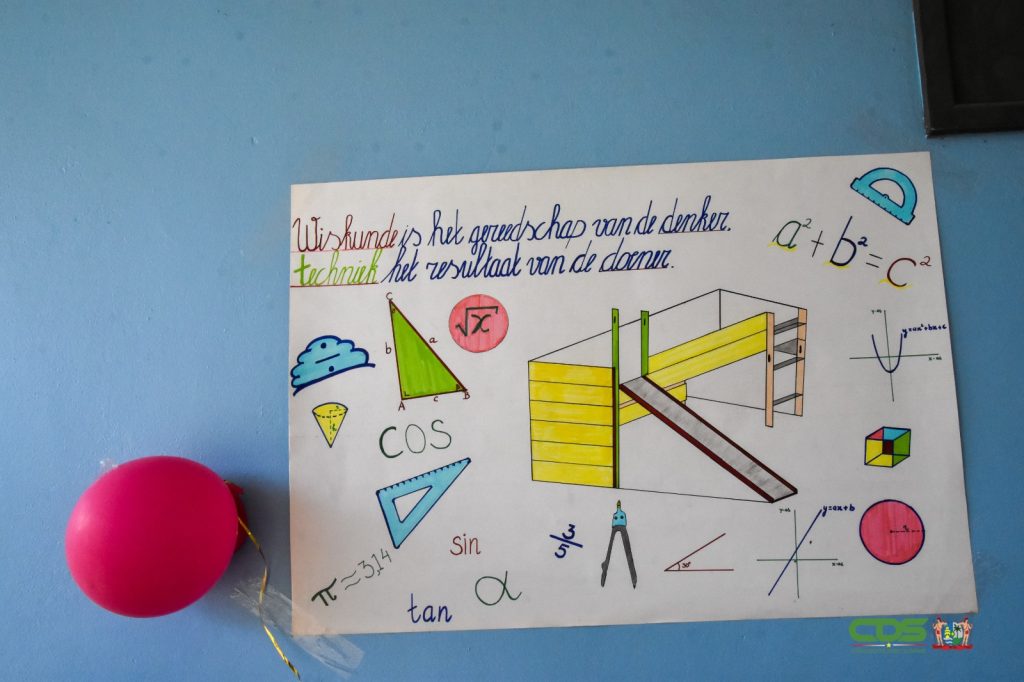 Wiskunde is het gereedschap van de denker.
techniek het resultaat van de doener.
a² + b² = c²
C
b
a
A
c
B
√x
y=ax²+bx+c
cos
sin
tan
α
π ≈ 3,14
3/5
30°
y=ax+b
CDS